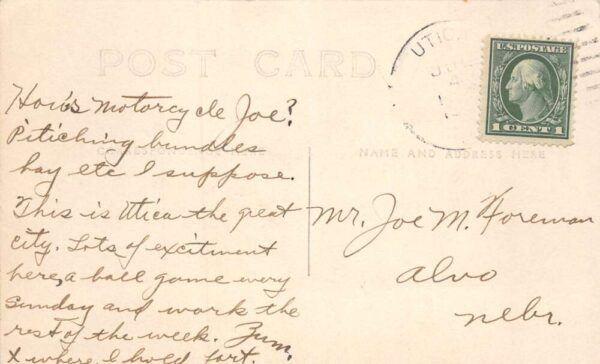 POST CARD
UTICA
U.S. POSTAGE
1 CENT 1
How's Motorcycle Joe?
Pitiching bundles
hay etc I suppose.
This is Utica the great
city. Lots of excitment
here, a ball game every
Sunday and work the
rest of the week.
X where I hold fort.
CORRESPONDENCE HERE
NAME AND ADDRESS HERE
Mr. Joe M. Foreman
Alvo
Nebr.